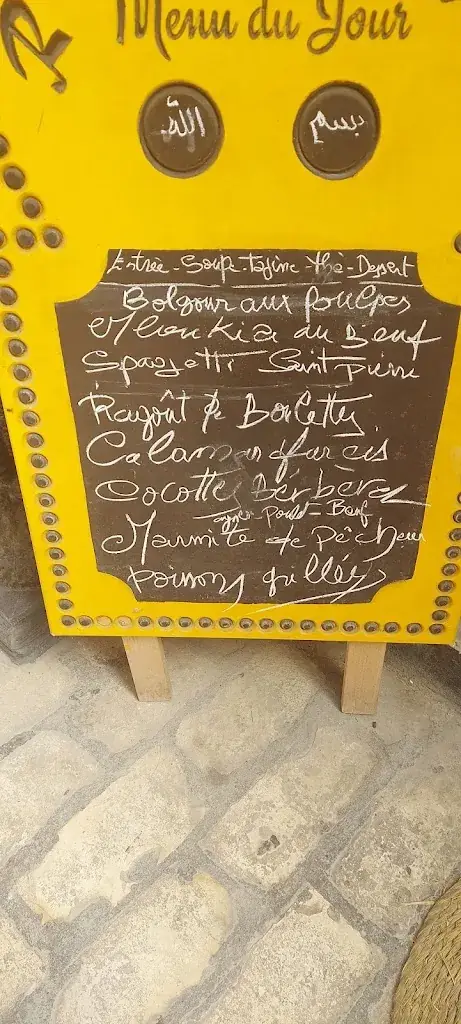 Menu du Jour
الله بسم
Entrée - Soupe - Tajine - thé - Dessert
Bolgour aux Poulpes
Mloukia au Bœuf
Spagetti Saint Pierre
Ragoût de Boulettes
Calamar farcis
Cocotte Berbère
agneau - Poulet - Bœuf
Marmite de Pêcheur
Poissons grillés